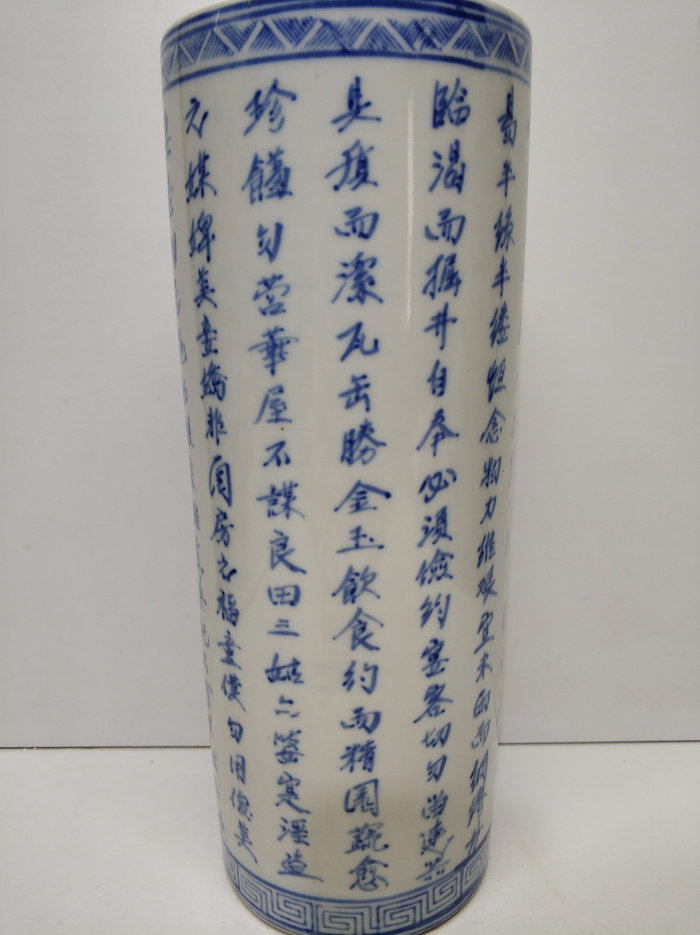 易半絲半縷恒念物力維艱宜未雨而綢繆毋
臨渴而掘井自奉必須儉約宴客切勿留連器
具質而潔瓦缶勝金玉飲食約而精園蔬愈
珍饈勿營華屋不謀良田三姑六婆寔淫盜
之媒婢美妾嬌非閨房之福童僕勿用俊美